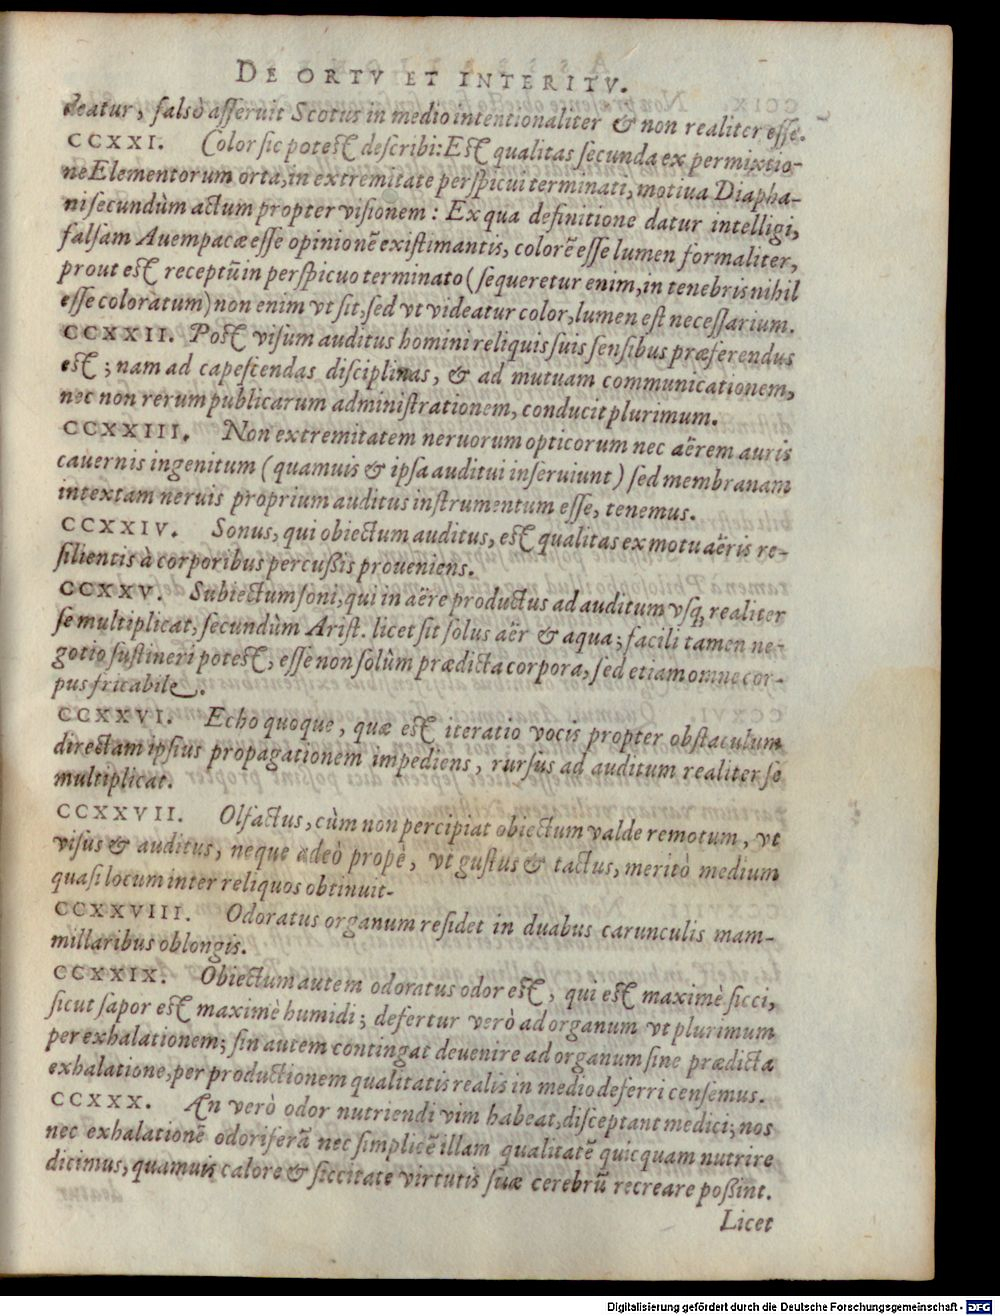 DE ORTV ET INTERITV.
deatur, falsò asseruit Scotus in medio intentionaliter & non realiter esse.
CCXXI. Color sic potest describi: Est qualitas secunda ex permixtio-
ne Elementorum orta, in extremitate perspicui terminati, motiua Diapha-
ni secundùm actum propter visionem: Ex qua definitione datur intelligi,
falsam Auempacæ esse opinionē existimantis, colorē esse lumen formaliter,
prout est receptũ in perspicuo terminato (sequeretur enim, in tenebris nihil
esse coloratum) non enim vt sit, sed vt videatur color, lumen est necessarium.
CCXXII. Post visum auditus homini reliquis suis sensibus præferendus
est; nam ad capescendas disciplinas, & ad mutuam communicationem,
nec non rerum publicarum administrationem, conducit plurimum.
CCXXIII. Non extremitatem neruorum opticorum nec aërem auris
cauernis ingenitum (quamuis & ipsa auditui inseruiunt) sed membranam
intextam neruis proprium auditus instrumentum esse, tenemus.
CCXXIV. Sonus, qui obiectum auditus, est qualitas ex motu aëris re-
silientis à corporibus percussis proueniens.
CCXXV. Subiectum soni, qui in aëre productus ad auditum vsq; realiter
se multiplicat, secundùm Arist. licet sit solus aër & aqua; facili tamen ne-
gotio sustineri potest, esse non solùm prædicta corpora, sed etiam omne cor-
pus fricabile.
CCXXVI. Echo quoque, quæ est iteratio vocis propter obstaculum
directam ipsius propagationem impediens, rursus ad auditum realiter se
multiplicat.
CCXXVII. Olfactus, cùm non percipiat obiectum valde remotum, vt
visus & auditus, neque adeò propè, vt gustus & tactus, meritò medium
quasi locum inter reliquos obtinuit.
CCXXVIII. Odoratus organum residet in duabus carunculis mam-
millaribus oblongis.
CCXXIX. Obiectum autem odoratus odor est, qui est maximè sicci,
sicut sapor est maximè humidi; defertur verò ad organum vt plurimum
per exhalationem; sin autem contingat deuenire ad organum sine prædicta
exhalatione, per productionem qualitatis realis in medio deferri censemus.
CCXXX. An verò odor nutriendi vim habeat, disceptant medici; nos
nec exhalationē odoriferā nec simplicē illam qualitatē quicquam nutrire
dicimus, quamuis calore & siccitate virtutis suæ cerebrũ recreare possint.
Licet
Digitalisierung gefördert durch die Deutsche Forschungsgemeinschaft - DFG